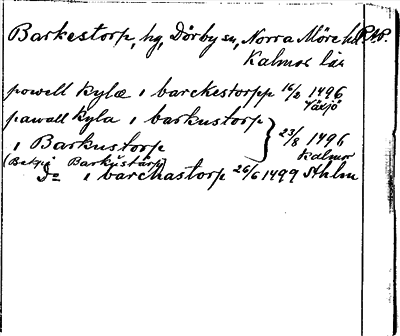 Barkestorp, hg, Dörby sn, Norra Möre hd R.A.P.
Kalmar län
powell Kylæ i barckestorpp 16/2 1496
Växjö
pawall Kyla i barkustorp
i Barkustorp } 23/8 1496
Kalmar
(Betyg Barkustårp)
Ds i barchastorp 26/6 1499 Sthlm